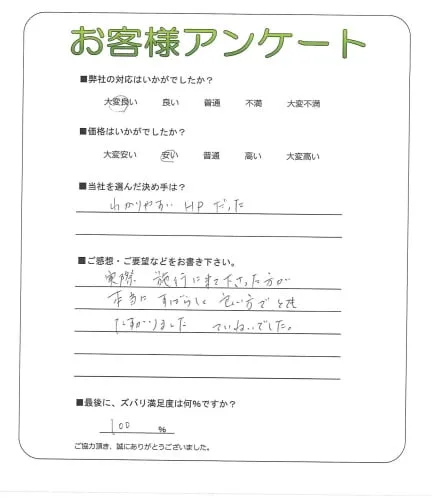 お客様アンケート
■弊社の対応はいかがでしたか？
大変良い 良い 普通 不満 大変不満
■価格はいかがでしたか？
大変安い 安い 普通 高い 大変高い
■当社を選んだ決め手は？
わかりやすい HP だった
■ご感想・ご要望などをお書き下さい。
実際 施行に来て下さった方が
本当に すばらしく 良い方で とても
たすかりました ていねいでした。
■最後に、ズバリ満足度は何%ですか？
100 %
ご協力頂き、誠にありがとうございました。